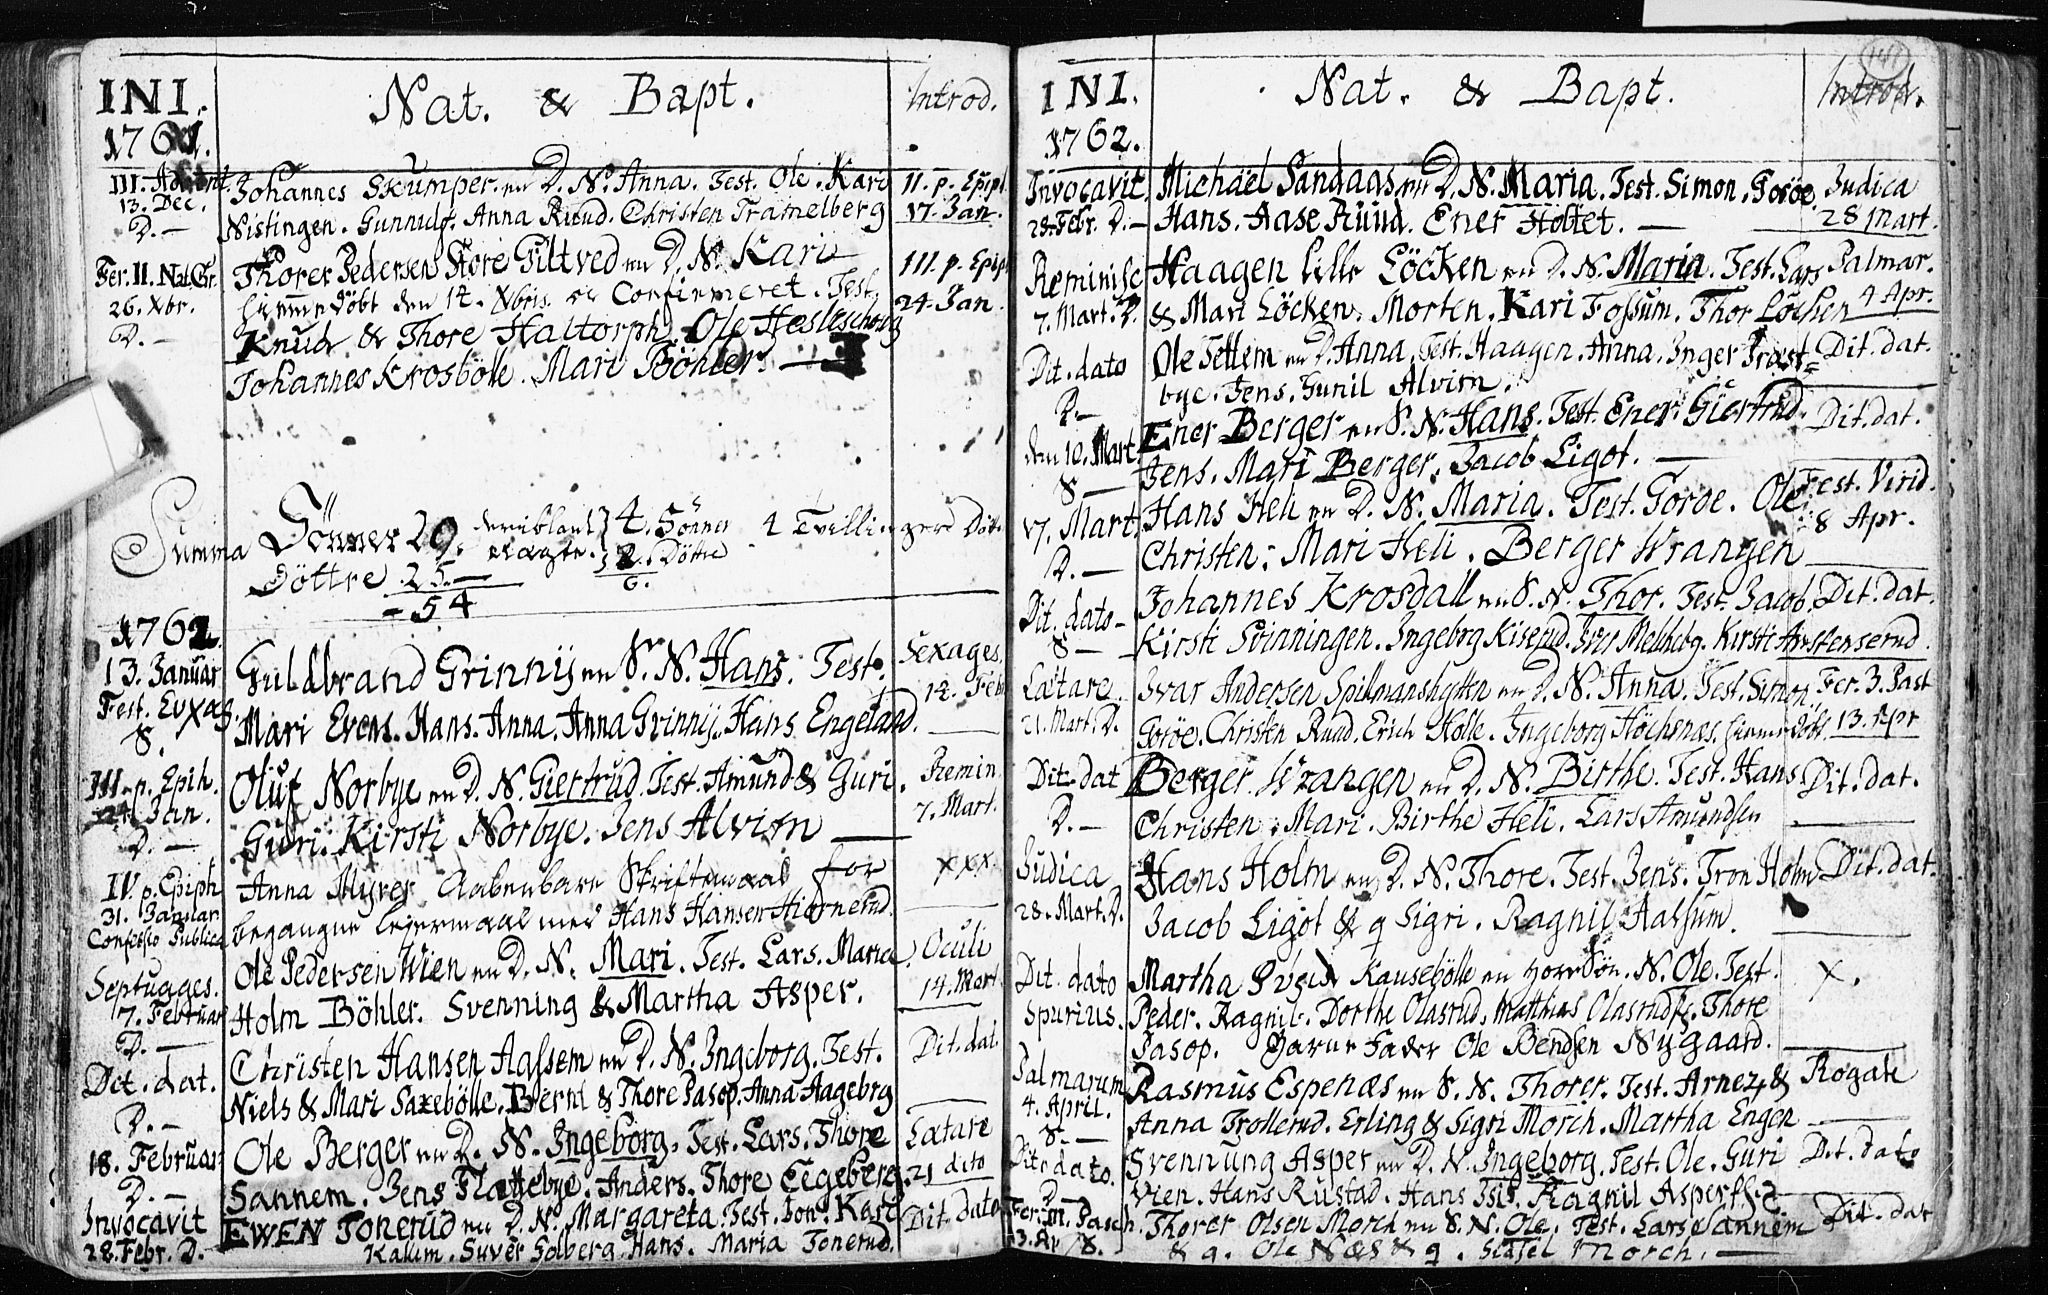 INI. Nat. & Bapt. Introd.
1761.
III. Advent. Johannes Skumper. en D. N. Anna. Test. Ole. Kari II. p. Epip.
13. Dec. Nistingen. Gunnulf. Anna Ruud. Christen Tramelberg 17. Jan.
D. —
Fer. II. Nat. Chr. Thorer Pedersen Store Tiltved en D. N. Kari III. p. Epip.
26. Xbr. hiemmedöbt den 14. Xbris er Confirmeret. Test. 24. Jan.
D. — Knud & Thore Haltorph. Ole
Johannes Krosbölle. Mari Böhler. —
Summa Sönner 29. deriblant 4. Sönner 4 Tvillinger Döt.
Döttre 25. — uægte. 2. Döttre
- 54 6.
1762.
13. Januar Guldbrand Grinnij en S. N. Hans. Test. Sexages.
14. Feb
Fest. Mari Evens. Hans. Anna. Anna Grinnij. Hans Engeland.
S.
III. p. Epih. Oluf Norbye en D. N. Giertrud. Test. Amund & Guri. Remin.
24. Jan. Guri. Kirsti Norbye. Jens Alvim — 7. Mart.
D. —
IV. p. Epiph Anna Myrer Aabenbare Skriftemaal for XXX.
31. Januar begangne leiermaal med Hans Hansen Hiernerud.
Confessio Publica
Septuages. Ole Pedersen Wien en D. N. Mari. Test. Lars. Maria Oculi
7. Februar Holm Böhler. Svenning & Martha Asper. 14. Mart
D. —
Dit. dat. Christen Hansen Aassem en D. N. Ingeborg. Test. Dit. dat.
D. — Niels & Mari Saxebölle. Bernt & Thore Pasop. Anna Aagebrg
18. Februar Ole Berger en D. N. Ingeborg. Test. Lars. Thore Lætare
D. — Sannem. Jens Flattebye. Anders. Thore Tegeberg. 21 dito
Invocavit EWEN Tonerud en D. N. Margareta. Test. Jon. Kari Dit. dato
28. Febr. D. Kalum. Suver Solberg. Hans. Maria Tonerud.
141
INI. Nat. & Bapt. Introd.
1762.
Invocavit Michael Sandaas en D. N. Maria. Test. Simon. Goröe. Judica
28. Febr. D. — Hans. Aase Ruud. Ener Holtet. — 28 Mart.
Reminisc Haagen lille Löcken en D. N. Maria. Test. Lars Palmar.
7. Mart. D. & Mari Löcken. Morten. Kari Fossum. Thor Löcken 4 Apr.
Dit. dato Ole Tettem en D. Anna. Test. Haagen. Anna. Inger Trøst= Dit. dat.
D. — bye. Jens. Gunil Alvim.
den 10. Mart. Ener Berger en S. N. Hans. Test. Ener. Giertrud. Dit. dat.
S — Jens. Mari Berger. Jacob Ligot. —
17. Mart. Hans Heli en D. N. Maria. Test. Gorde. Ole. Fest. Virid.
D. — Christen. Mari Heli. Berger Wrangen 8 Apr.
Dit. dato - Johannes Krosdall en S. N. Thor. Test. Jacob. Dit. dat.
S — Kirsti Svinningen. Ingebrg Kiserud. Kirsti
Lætare Ivar Andersen Spillmanshytten en D. N. Anna. Test. Simon. Fer. 3. Past
21. Mart. D. Goröe. Christen Ruud. Erich Holle. Ingeborg Höchsnæs. hiemmedöbt. 13. Apr
Dit. dat Berger Wrangen en D. N. Birthe. Test. Hans Dit. dat.
D. — Christen. Mari. Birthe Heli. Lars Amundsen
Judica Hans Holm en D. N. Thore. Test. Jens. Tron Holm Dit. dat.
28. Mart. D. Jacob Ligot & q Sigri. Ragnil Aassum.
Dit. dato Martha Kausebölle en Horesön. N. Ole. Test. X.
Spurius. Peder. Ragnil. Dorthe Olasrud. Matthias Olasrud. Thore
Pasop. Barne Fader Ole Bendsen Nygaard.
Palmarum Rasmus Espenæs en S. N. Thorer. Test. Arne & Rogate
4. April. Anna Trollerud. Erling & Sigri Morch. Martha Engen
S. —
Dito dato. Svennung Asper en D. N. Ingeborg. Test. Ole. Guri Dit. dato
D — Vien. Hans Rustad. Hans Ragnil Asper
Fer. III. Pasch. Thorer Olsen Morch en S. N. Ole. Test. Lars Sannem Dit. dat
13. Apr S. & q. Ole Næs & q. Morch. —